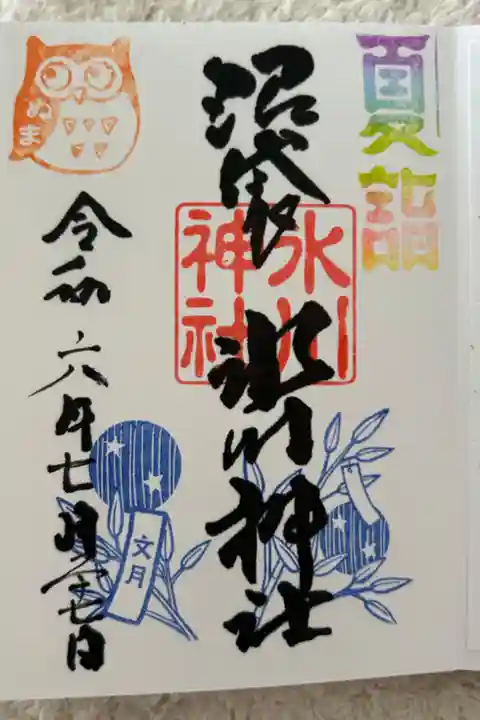 夏詣
沼袋 氷川神社
氷川
神社
ぬま
文月
令和六年七月廿七日